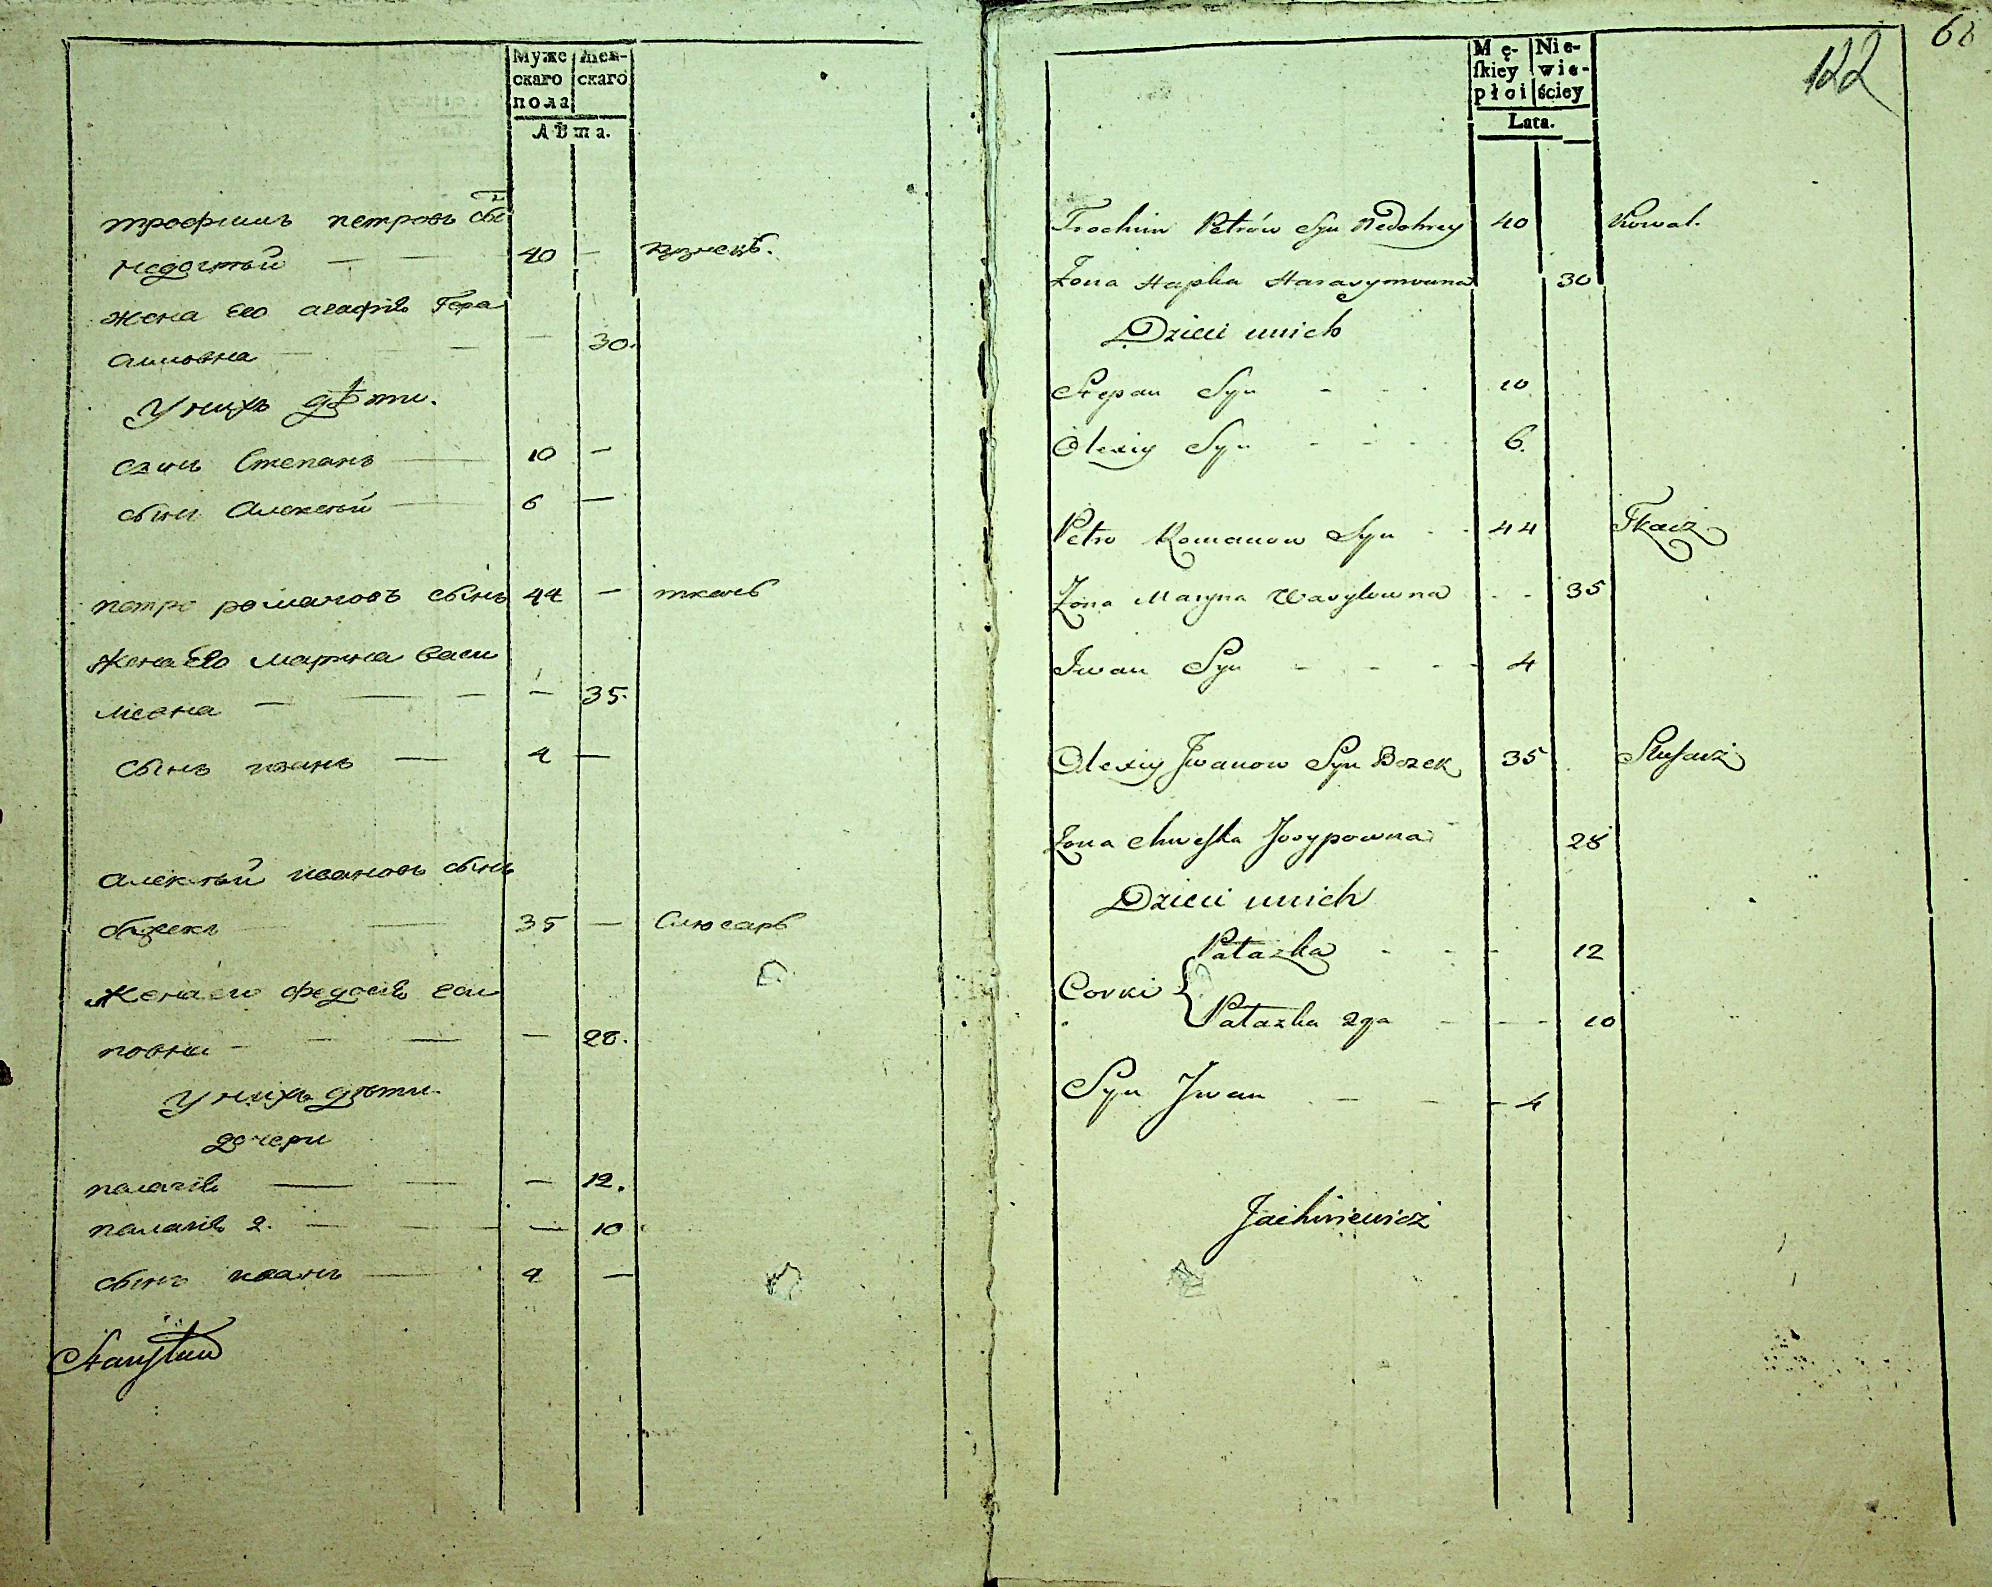 Муже
скаго
пола
Жен-
скаго
Лѣта.
трофимъ петровъ сы
недогтый — — 40 — кузнецъ.
жена Его агафiя Гера
симовна — — — 30.
У нихъ дѣти.
сынъ Степанъ — 10 —
сынъ Алексей — 6 —
петро романовъ сынъ 44 — ткачь
жена Его марина Васи
лиевна — — — 35.
сынъ иванъ — 4 —
алексѣй ивановъ сынъ
— — 35 — Слюсарь
жена его федосiя Еси
повна — — — 28.
У нихъ дѣти
дочери
палагiя — — — 12.
палагiя 2. — — — 10
сынъ иванъ — 4 —
Mę-
skiey
płci
Nie-
wie-
ściey
Lata.
122
68
Trochim Petrów Syn Nedohrey 40 Kowal.
Żona Hapka Harasymowna 30
Dzieci unich
Stepan Syn - - 10
Olexiy Syn - - - 6.
Petro Romanow Syn - - 44 Tkacz
Żona Maryna Wasylowna - - 35
Iwan Syn - - - 4
Olexiy Jwanow Syn Bozek 35 Slusarz
Żona Chweska Josypowna 28
Dzieci unich
Palazka - - - 12
Corki {
Palazka 2ga - - - 10
Syn Jwan - - - 4
Jachimewicz